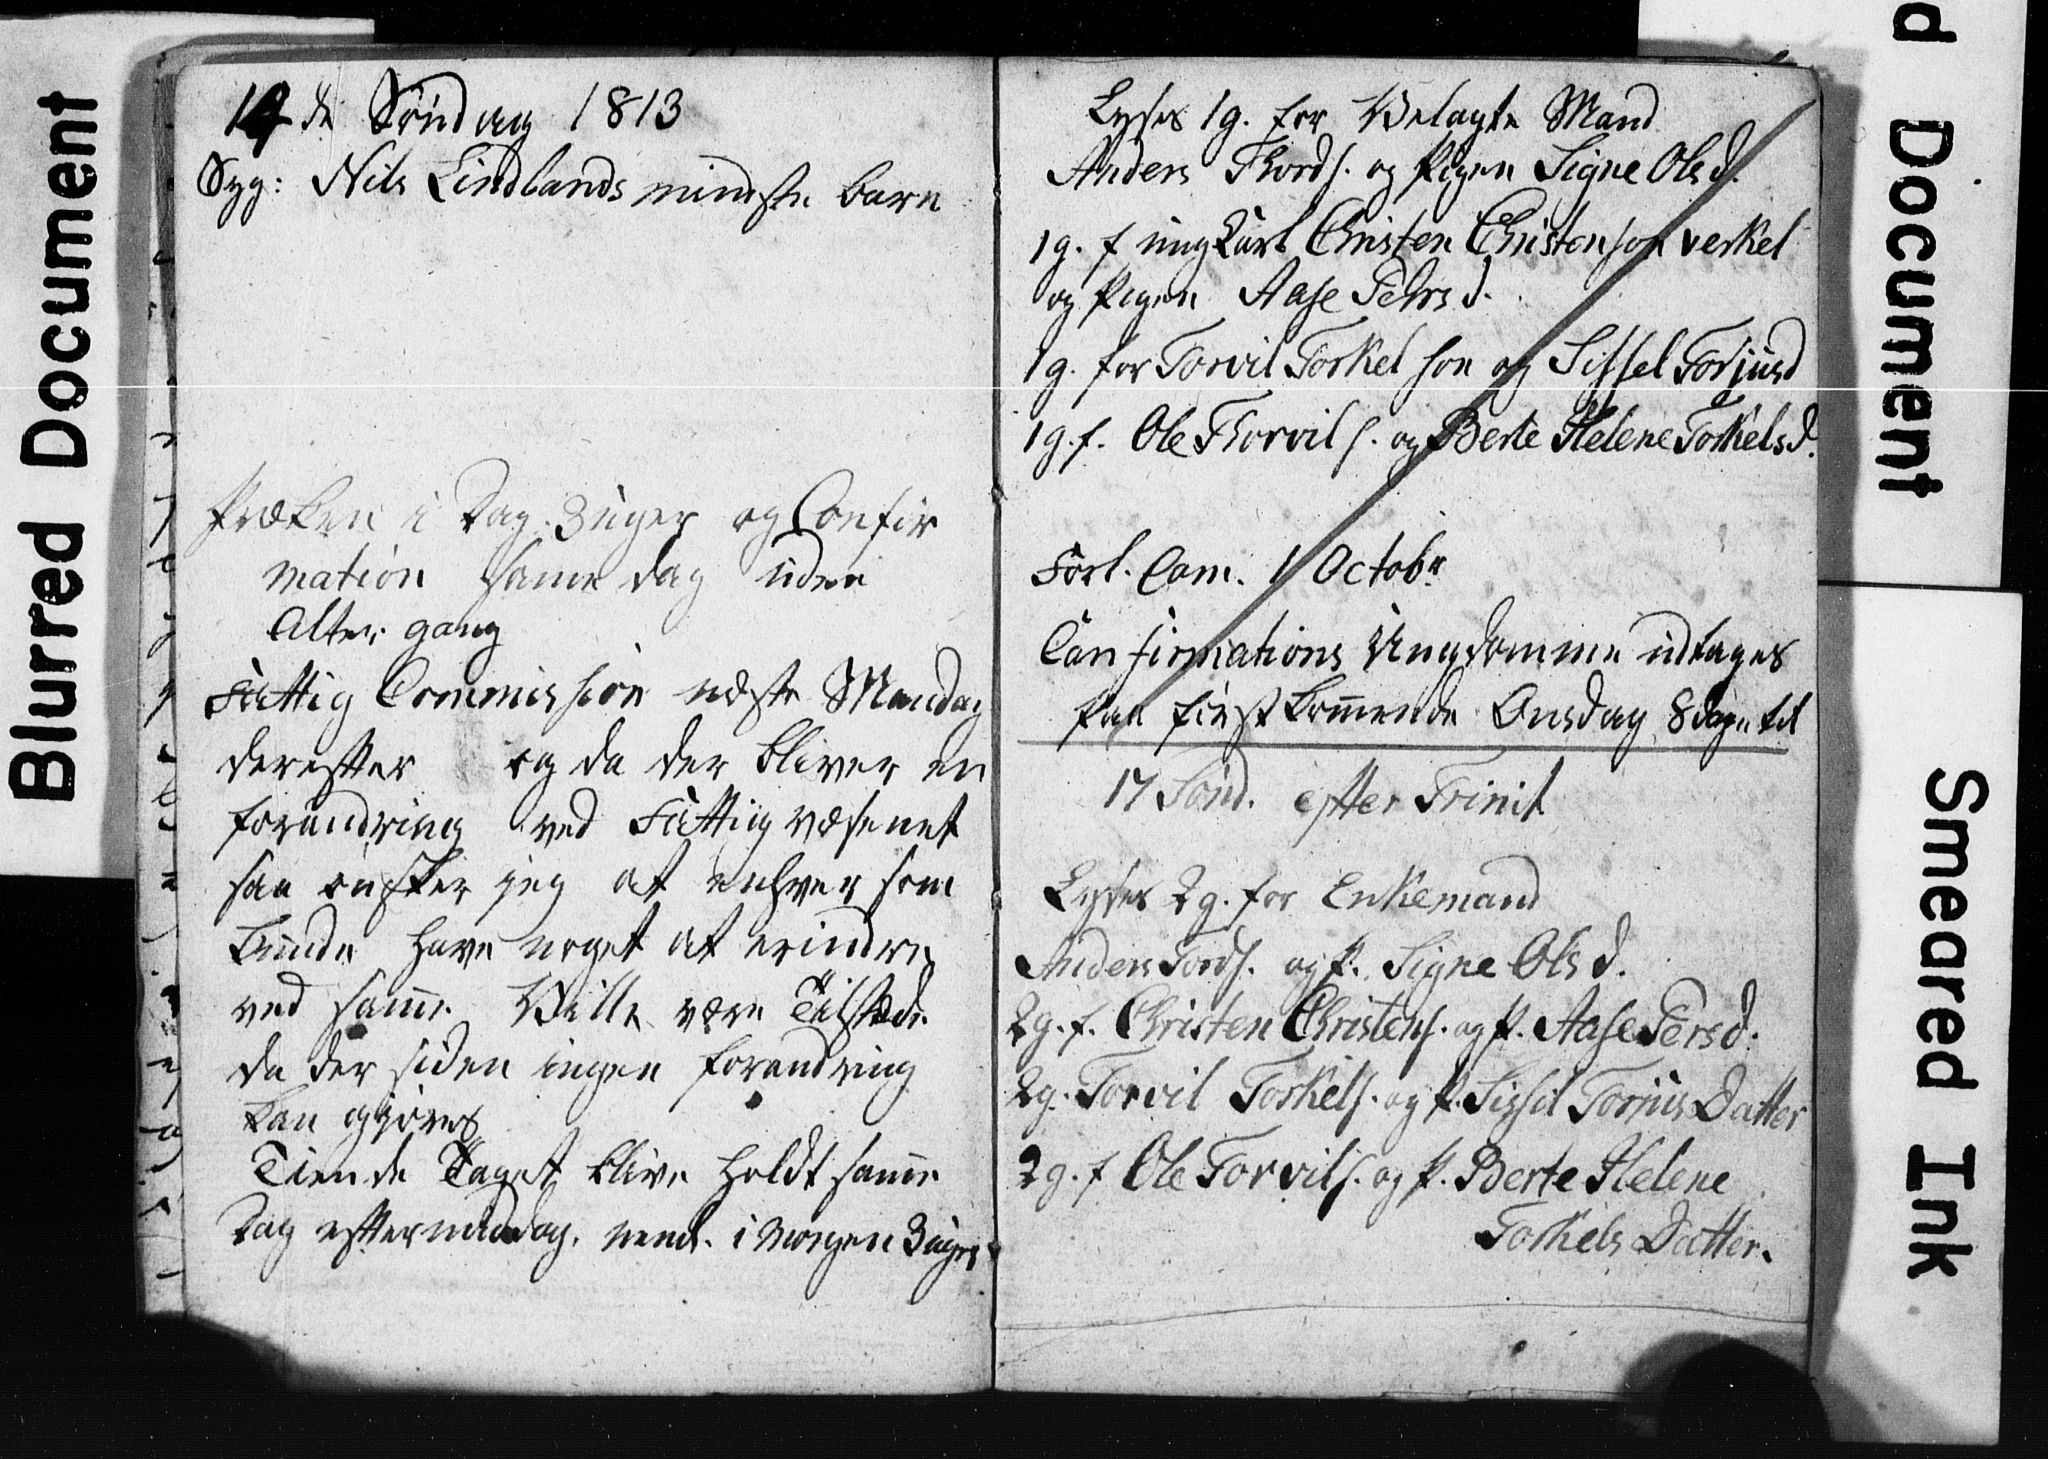 14de Søndag 1813
Syg: Nils Lindlands mindste barn
Præken i Dag 3 uger og Confir
mation samme dag uden
Alter gang
Fattig Commission næste Mandag
derefter og da der bliver en
forandring ved Fattigvæsenet
saa ønsker jeg at enhver som
kunde have noget at erindre
ved samme Ville være Tilstede
da der siden ingen forandring
kan gjøres
Tiende Taget blive holdt samme
Dag eftermiddag. nemt. i morgen 3 uger
Lyses 1g. for Mand
Anders Thords. og Pigen Signe Olsd.
1g. f ungkarl Christen Christenson verkel
og Pigen Aase Pehrsd.
1g. for Torvil Torkelson og Sissel Torjusd
1g. f. Ole Thorvils. og Berte Helene Torkelsd.
Forl. Com. 1 Octobr
Confirmations Ungdomme udtages
paa først kommende Onsdag 8 dage til
17 Sønd. efter Trinit
Lyses 2g. for Enkemand
Anders Tords. og P. Signe Olsd.
2g. f. Christen Christens. og P. Aase Persd.
2g. Torvil Torkels. og P. Sissil Torjus Datter
2g. f Ole Torvils. og P. Berte Helene
Torkels Datter.
Blurred Document
d Document
Smeared Ink